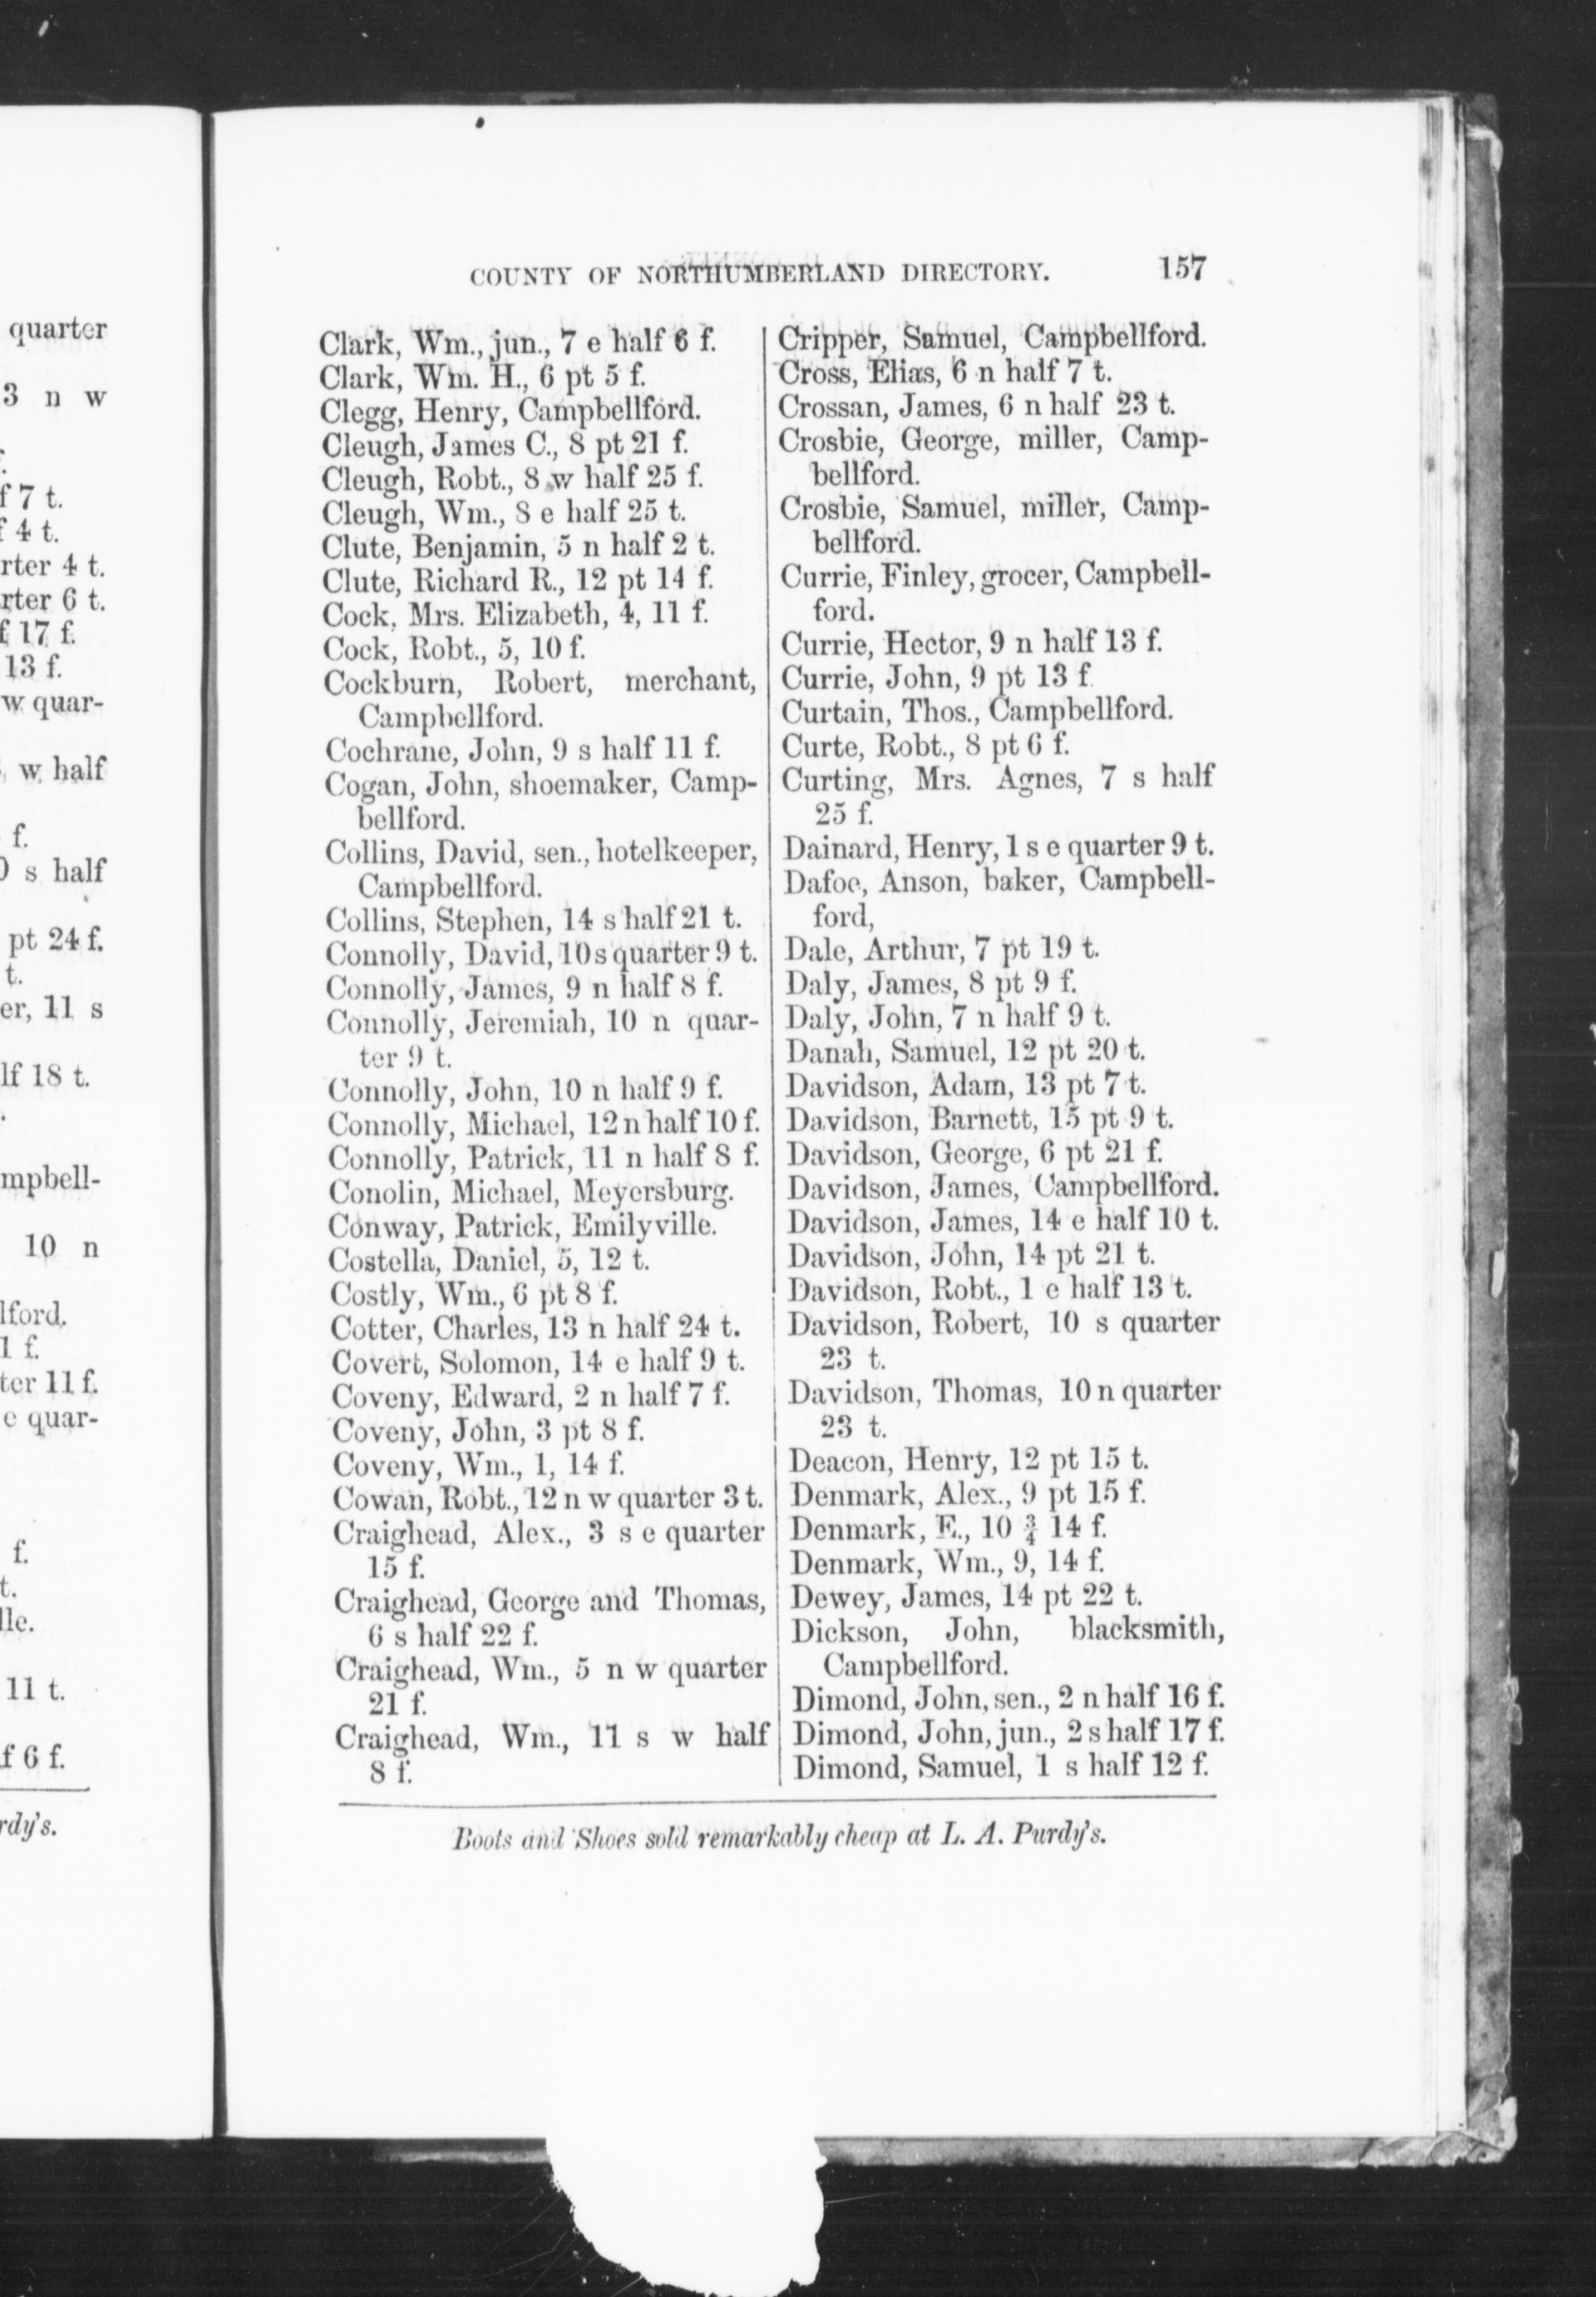 quarter
3 n w
f 7 t.
f 4 t.
rter 4 t.
rter 6 t.
f 17 f.
13 f.
w quar-
w half
f.
s half
pt 24 f.
t.
er, 11 s
lf 18 t.
mpbell-
10 n
lford.
1 f.
ter 11 f.
e quar-
f.
t.
lle.
11 t.
f 6 f.
rdy's.
COUNTY OF NORTHUMBERLAND DIRECTORY. 157
Clark, Wm., jun., 7 e half 6 f.
Clark, Wm. H., 6 pt 5 f.
Clegg, Henry, Campbellford.
Cleugh, James C., 8 pt 21 f.
Cleugh, Robt., 8 w half 25 f.
Cleugh, Wm., 8 e half 25 t.
Clute, Benjamin, 5 n half 2 t.
Clute, Richard R., 12 pt 14 f.
Cock, Mrs. Elizabeth, 4, 11 f.
Cock, Robt., 5, 10 f.
Cockburn, Robert, merchant,
Campbellford.
Cochrane, John, 9 s half 11 f.
Cogan, John, shoemaker, Camp-
bellford.
Collins, David, sen., hotelkeeper,
Campbellford.
Collins, Stephen, 14 s half 21 t.
Connolly, David, 10 s quarter 9 t.
Connolly, James, 9 n half 8 f.
Connolly, Jeremiah, 10 n quar-
ter 9 t.
Connolly, John, 10 n half 9 f.
Connolly, Michael, 12 n half 10 f.
Connolly, Patrick, 11 n half 8 f.
Conolin, Michael, Meyersburg.
Conway, Patrick, Emilyville.
Costella, Daniel, 5, 12 t.
Costly, Wm., 6 pt 8 f.
Cotter, Charles, 13 n half 24 t.
Covert, Solomon, 14 e half 9 t.
Coveny, Edward, 2 n half 7 f.
Coveny, John, 3 pt 8 f.
Coveny, Wm., 1, 14 f.
Cowan, Robt., 12 n w quarter 3 t.
Craighead, Alex., 3 s e quarter
15 f.
Craighead, George and Thomas,
6 s half 22 f.
Craighead, Wm., 5 n w quarter
21 f.
Craighead, Wm., 11 s w half
8 f.
Cripper, Samuel, Campbellford.
Cross, Elias, 6 n half 7 t.
Crossan, James, 6 n half 23 t.
Crosbie, George, miller, Camp-
bellford.
Crosbie, Samuel, miller, Camp-
bellford.
Currie, Finley, grocer, Campbell-
ford.
Currie, Hector, 9 n half 13 f.
Currie, John, 9 pt 13 f.
Curtain, Thos., Campbellford.
Curte, Robt., 8 pt 6 f.
Curting, Mrs. Agnes, 7 s half
25 f.
Dainard, Henry, 1 s e quarter 9 t.
Dafoe, Anson, baker, Campbell-
ford,
Dale, Arthur, 7 pt 19 t.
Daly, James, 8 pt 9 f.
Daly, John, 7 n half 9 t.
Danah, Samuel, 12 pt 20 t.
Davidson, Adam, 13 pt 7 t.
Davidson, Barnett, 15 pt 9 t.
Davidson, George, 6 pt 21 f.
Davidson, James, Campbellford.
Davidson, James, 14 e half 10 t.
Davidson, John, 14 pt 21 t.
Davidson, Robt., 1 e half 13 t.
Davidson, Robert, 10 s quarter
23 t.
Davidson, Thomas, 10 n quarter
23 t.
Deacon, Henry, 12 pt 15 t.
Denmark, Alex., 9 pt 15 f.
Denmark, E., 10 ¾ 14 f.
Denmark, Wm., 9, 14 f.
Dewey, James, 14 pt 22 t.
Dickson, John, blacksmith,
Campbellford.
Dimond, John, sen., 2 n half 16 f.
Dimond, John, jun., 2 s half 17 f.
Dimond, Samuel, 1 s half 12 f.
Boots and Shoes sold remarkably cheap at L. A. Purdy's.